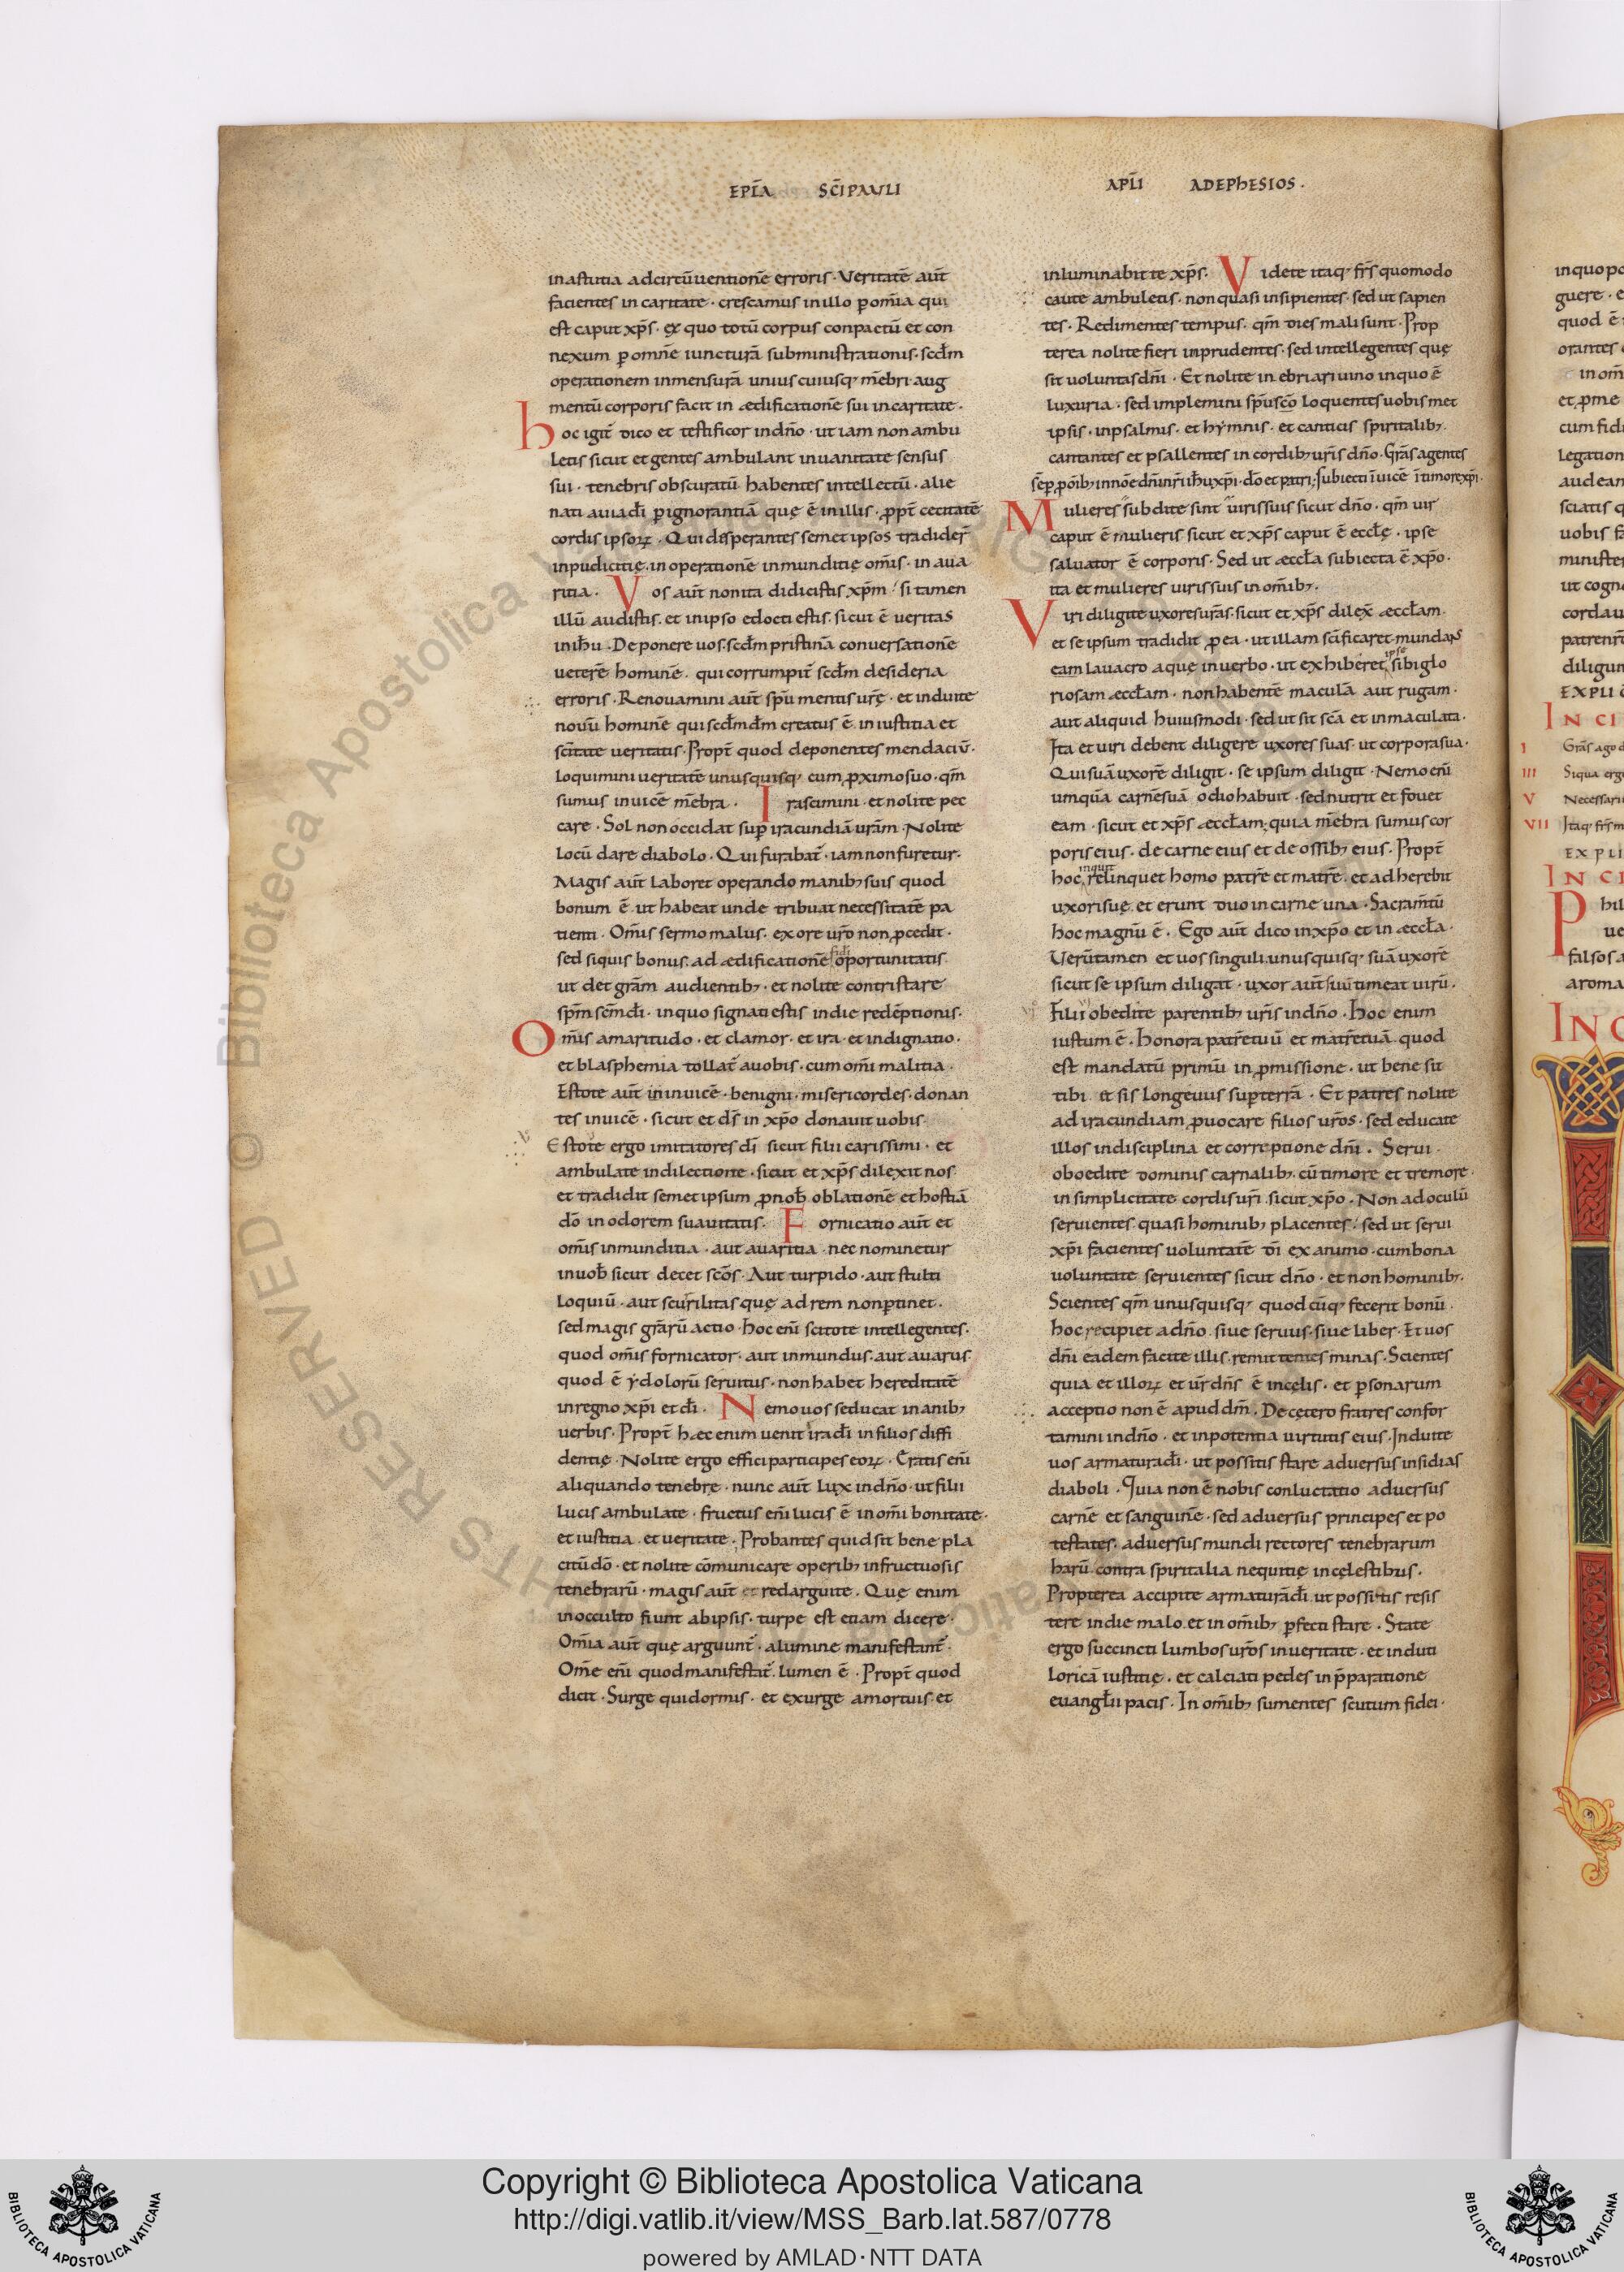 EPL̄A SC̄I PAULI APL̄I AD EPHESIOS.
in astutia ad circūuentionē erroris. Veritatē aūt
facientes in caritate. crescamus in illo p om̄ia qui
est caput xp̄s. ex quo totū corpus conpactū et con
nexum p omnē iuncturā subministrationis. scd̄m
operationem in mensurā unius cuiusq; mēbri. aug
mentū corporis facit in ædificationē sui in caritate.
hoc igit̄ dico et testificor in dn̄o. ut iam non ambu
letis sicut et gentes ambulant in uanitate sensus
sui. tenebris obscuratū habentes intellectū. alie
nati a uia dī p ignorantiā quę ē in illis. ppt̄ cecitatē
cordis ipsoꝝ. Qui desperantes semet ipsos tradider̄
inpudicitię. in operationē inmunditię om̄is. in aua
ritia. Vos aūt non ita didicistis xp̄m. si tamen
illū audistis. et in ipso edocti estis. sicut ē ueritas
in ih̄u. Deponere uos. scd̄m pristinā conuersationē
ueterē hominē. qui corrumpit̄ scd̄m desideria
erroris. Renouamini aūt sp̄u mentis ur̄ę. et induite
nouū hominē qui scd̄m dm̄ creatus ē. in iustitia et
sc̄itate ueritatis. Propt̄ quod deponentes mendaciū.
loquimini ueritatē unusquisq; cum pximo suo. qm̄
sumus inuicē mēbra. Irascimini. et nolite pec
care. Sol non occidat sup iracundiā ur̄am. Nolite
locū dare diabolo. Qui furabat̄. iam non furetur.
Magis aūt laboret operando manib; suis quod
bonum ē. ut habeat unde tribuat necessitatē pa
tienti. Om̄is sermo malus. ex ore ur̄o non pcedit.
sed siquis bonus. ad ædificationē fidi oportunitatis
ut det gr̄am audientib;. et nolite contristare
sp̄m sc̄m dī. in quo signati estis in die redēptionis.
Om̄is amaritudo. et clamor. et ira. et indignatio.
et blasphemia tollat̄ a uobis. cum om̄i malitia.
Estote aūt in inuicē. benigni. misericordes. donan
tes inuicē. sicut et ds̄ in xp̄o donauit uobis.
Estote ergo imitatores dī sicut filii carissimi. et
ambulate in dilectione. sicut et xp̄s dilexit nos
et tradidit semet ipsum p nob̄ oblationē et hostiā
dō in odorem suauitatis. Fornicatio aūt et
om̄is inmunditia. aut auaritia. nec nominetur
in uob̄ sicut decet sc̄os. Aut turpido. aut stulti
loquiū. aut scurilitas quę ad rem non ptinet.
sed magis gr̄arū actio. hoc enī scitote intellegentes.
quod om̄is fornicator. aut inmundus. aut auarus
quod ē ydolorū seruitus. non habet hereditatē
in regno xp̄i et dī. Nemo uos seducat inanib;
uerbis. Propt̄ hæc enim uenit ira dī in filios diffi
dentię. Nolite ergo effici participes eoꝝ. Eratis enī
aliquando tenebrę. nunc aūt lux in dn̄o. ut filii
lucis ambulate. fructus enī lucis ē in om̄i bonitate.
et iustitia. et ueritate. Probantes quid sit bene pla
citū dō. et nolite cōmunicare operib; infructuosis
tenebrarū. magis aūt et redarguite. Quę enim
in occulto fiunt ab ipsis. turpe est etiam dicere.
Om̄ia aūt quę arguunt̄. a lumine manifestant̄.
Om̄e enī quod manifestat̄. lumen ē. Propt̄ quod
dicit. Surge qui dormis. et exurge a mortuis et
inluminabit te xp̄s. Videte itaq; fr̄s quomodo
caute ambuletis. non quasi insipientes. sed ut sapien
tes. Redimentes tempus. qm̄ dies mali sunt. Prop
terea nolite fieri inprudentes. sed intellegentes quę
sit uoluntas dn̄i. Et nolite inebriari uino in quo ē
luxuria. sed implemini sp̄u sc̄o loquentes uobismet
ipsis. in psalmis. et hymnis. et canticis spiritalib;.
cantantes et psallentes in cordib; ur̄is dn̄o. Gr̄as agentes
sēp p ōib; in nōe dn̄i nr̄i ih̄u xp̄i. dō et patri; Subiecti īuicē ī timore xp̄i.
Mulieres subdite sint uiris suis sicut dn̄o. qm̄ uir
caput ē mulieris sicut et xp̄s caput ē eccl̄ę. ipse
saluator ē corporis. Sed ut æccl̄a subiecta ē xp̄o.
ita et mulieres uiris suis in om̄ib;.
Viri diligite uxores ur̄as. sicut et xp̄s dilex̄ æccl̄am.
et se ipsum tradidit p ea. ut illam sc̄ificaret mundans
eam lauacro aquę in uerbo. ut exhiberet ipse sibi glo
riosam æccl̄am. non habentē maculā aut rugam.
aut aliquid huiusmodi. sed ut sit sc̄a et inmaculata.
Ita et uiri debent diligere uxores suas. ut corpora sua.
Qui suā uxorē diligit. se ipsum diligit. Nemo enī
umquā carnē suā odio habuit. sed nutrit et fouet
eam. sicut et xp̄s æccl̄am. quia mēbra sumus cor
poris eius. de carne eius et de ossib; eius. Propt̄
hoc inquit relinquet homo patrē et matrē. et adherebit
uxori suę. et erunt duo in carne una. Sacram̄tū
hoc magnū ē. Ego aūt dico in xp̄o et in æccl̄a.
Verūtamen et uos singuli. unusquisq; suā uxorē
sicut se ipsum diligat. uxor aūt suū timeat uirū.
Filii obedite parentib; ur̄is in dn̄o. Hoc enim
iustum ē. Honora patrē tuū et matrē tuā. quod
est mandatū primū in pmissione. ut bene sit
tibi et sis longeuus sup terrā. Et patres nolite
ad iracundiam puocare filios ur̄os. sed educate
illos in disciplina et correptione dn̄i. Serui.
oboedite dominis carnalib;. cū timore et tremore.
in simplicitate cordis ur̄i. sicut xp̄o. Non ad oculū
seruientes. quasi hominib; placentes. sed ut serui
xp̄i facientes uoluntatē dī ex animo. cum bona
uoluntate seruientes sicut dn̄o. et non hominib;.
Scientes qm̄ unusquisq; quodcūq; fecerit bonū.
hoc recipiet a dn̄o. siue seruus. siue liber. Et uos
dn̄i eadem facite illis. remittentes minas. Scientes
quia et illoꝝ et ur̄ dn̄s ē in celis. et psonarum
acceptio non ē apud dm̄. De cętero fratres confor
tamini in dn̄o. et in potentia uirtutis eius. Induite
uos armatura dī. ut possitis stare aduersus insidias
diaboli. Quia non ē nobis conluctatio aduersus
carnē et sanguinē. sed aduersus principes et po
testates. aduersus mundi rectores tenebrarum
harū contra spiritalia nequitię in celestibus.
Propterea accipite armaturā dī. ut possitis resis
tere in die malo. et in om̄ib; pfecti stare. State
ergo succincti lumbos ur̄os in ueritate. et induti
loricā iustitię. et calciati pedes in p̄paratione
euangl̄ii pacis. In om̄ib; sumentes scutum fidei.
in quo po
guere. e
quod ē
orantes
in om̄
et p me
cum fidu
legation
audean
sciatis q
uobis fa
minister
ut cogn
corda u
patre nr̄
diligun
EXPLIC
INCI
I Gr̄as ago d
III Siqua ergo
V Necessari
VII Itaq; fr̄s m
EXPLI
INCI
Phil
ue
falsos a
aroma
INC
RESERVED © Biblioteca Apostolica Vaticana
Copyright © Biblioteca Apostolica Vaticana
http://digi.vatlib.it/view/MSS_Barb.lat.587/0778
powered by AMLAD·NTT DATA
BIBLIOTECA APOSTOLICA VATICANA
BIBLIOTECA APOSTOLICA VATICANA